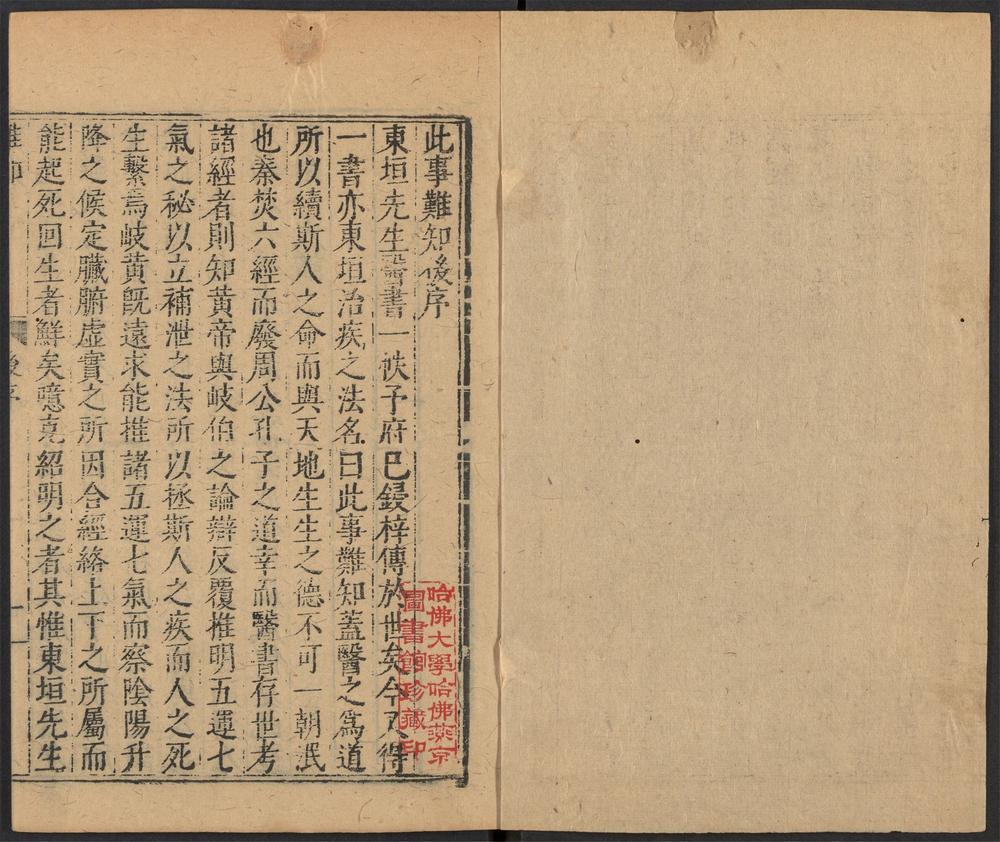 此事難知後序
東垣先生醫書一帙予府已鋟梓傳於世矣今又得
一書亦東垣治疾之法名曰此事難知蓋醫之為道
所以續斯人之命而與天地生生之德不可一朝泯
也秦焚六經而廢周公孔子之道幸而醫書存世考
諸經者則知黃帝與岐伯之論辯反覆推明五運七
氣之秘以立補泄之法所以拯斯人之疾而人之死
生繫焉岐黃既遠求能推諸五運七氣而察陰陽升
降之候定臟腑虛實之所因合經絡上下之所屬而
能起死回生者鮮矣噫克紹明之者其惟東垣先生
難知
後序
一
哈佛大學哈佛燕京
圖書館珍藏印